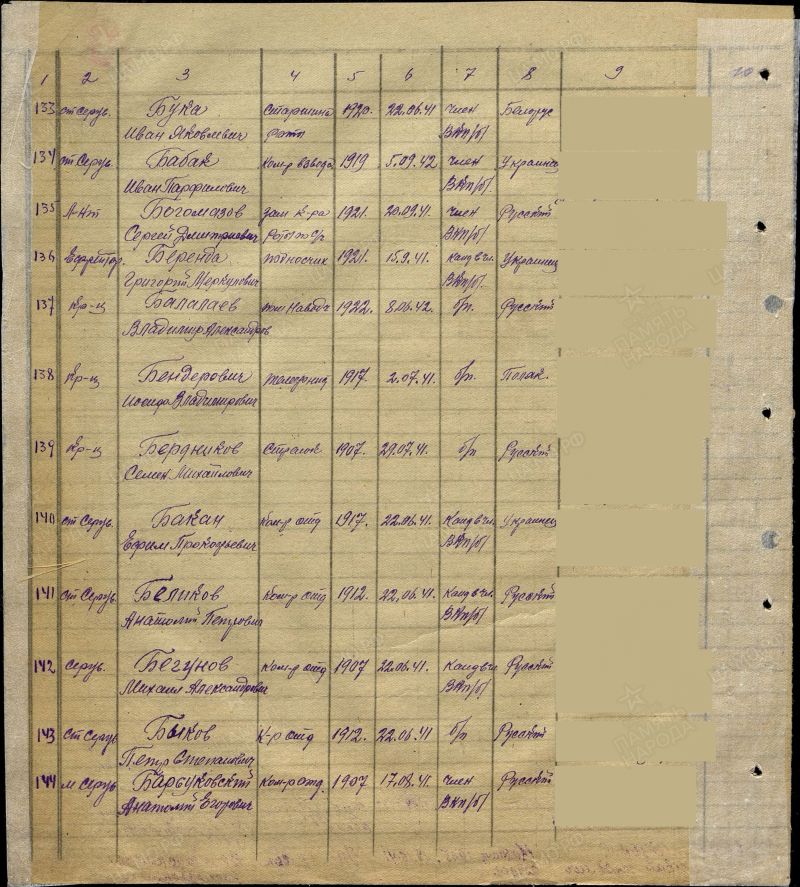 1 2 3 4 5 6 7 8 9 10
133 ст серж. Бука Старшина 1920. 22.06.41 член Белорус
Иван Яковлевич роты ВКП/б/
134 ст Серж. Бабак Ком-р взвода 1919 5.09.42 член Украинец
Иван Парфилович ВКП/б/.
135 Л-нт Богомазов зам к-ра 1921. 20.09.41. член Русский
Сергей Дмитриевич Роты ВКП/б/
136 Ефрейтор. Беренда подносчик 1921. 15.9.41. канд вчл. Украинец
Григорий Меркулович ВКП/б/
137 Кр-ц Балалаев пом Навод 1922. 8.06.42. б/п. Русский
Владимир Александров
138 Кр-ц Бендерович телефонист 1917. 2.07.41. б/п. Поляк.
Иосиф Владимирович
139 Кр-ц Бердников Стрелок 1907. 29.07.41. б/п Русский
Семен Михайлович
140 ст Серж. Бакан Ком-р отд 1917. 22.06.41. Канд вчл. Украинец
Ефим Прокофьевич ВКП/б/
141 ст Серж. Беликов Ком-р отд 1912. 22.06.41. Канд вчл. Русский
Анатолий Петрович ВКП/б/
142 Серж. Бегунов Ком-р отд 1907 22.06.41. Канд вчл Русский
Михаил Александрович ВКП/б/
143 Ст Серж Быков К-р отд 1912. 22.06.41 б/п Русский
Петр Степанович
144 м Серж Барбуковский Ком-р отд. 1907 17.08.41. член Русский
Анатолий Егорович ВКП/б/
ПАМЯТЬ
НАРОДА